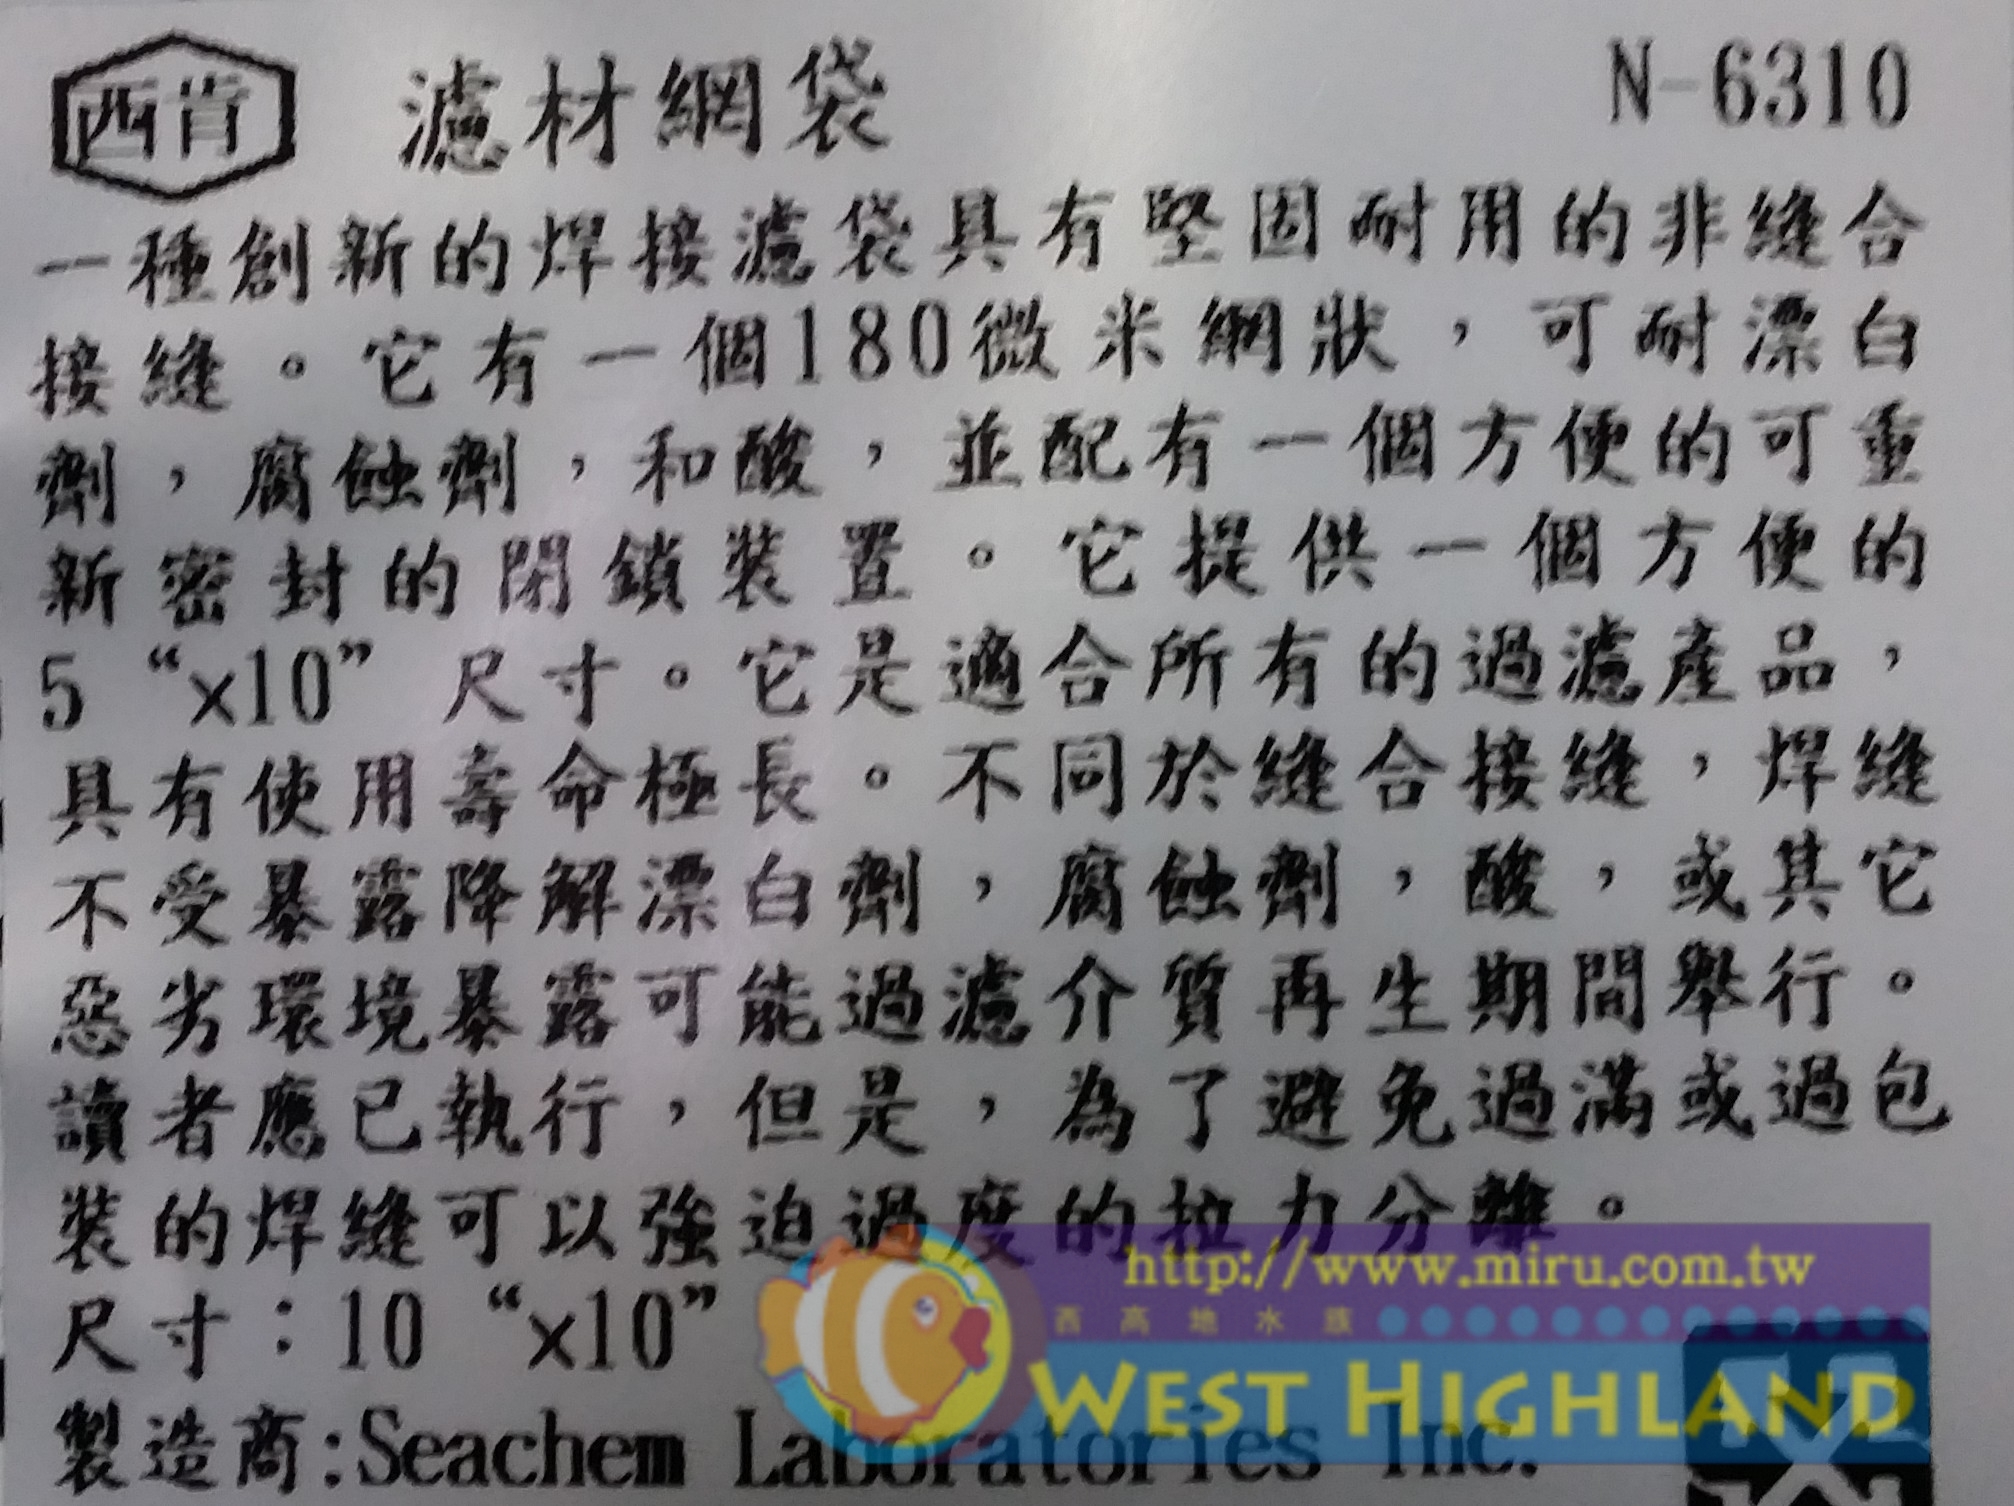 西肯 濾材網袋 N-6310
一種創新的焊接濾袋具有堅固耐用的非縫合
接縫。它有一個180微米網狀，可耐漂白
劑，腐蝕劑，和酸，並配有一個方便的可重
新密封的閉鎖裝置。它提供一個方便的
5 “x10” 尺寸。它是適合所有的過濾產品，
具有使用壽命極長。不同於縫合接縫，焊縫
不受暴露降解漂白劑，腐蝕劑，酸，或其它
惡劣環境暴露可能過濾介質再生期間舉行。
讀者應已執行，但是，為了避免過滿或過包
裝的焊縫可以強迫過度的拉力分離。
尺寸：10 “x10”
製造商:Seachem Laboratories Inc.
http://www.miru.com.tw
西高地水族
WEST HIGHLAND